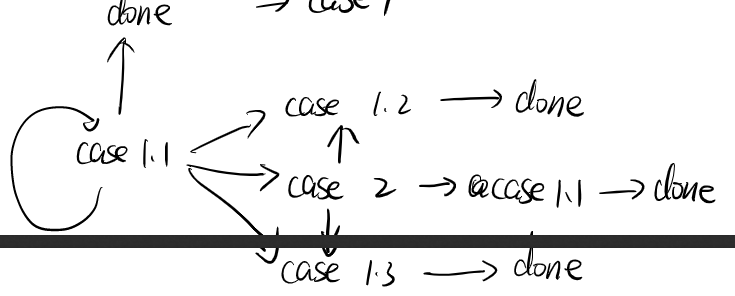 done → case 1
case 1.2 → done
case 1.1
case 2 → case 1.1 → done
case 1.3 → done